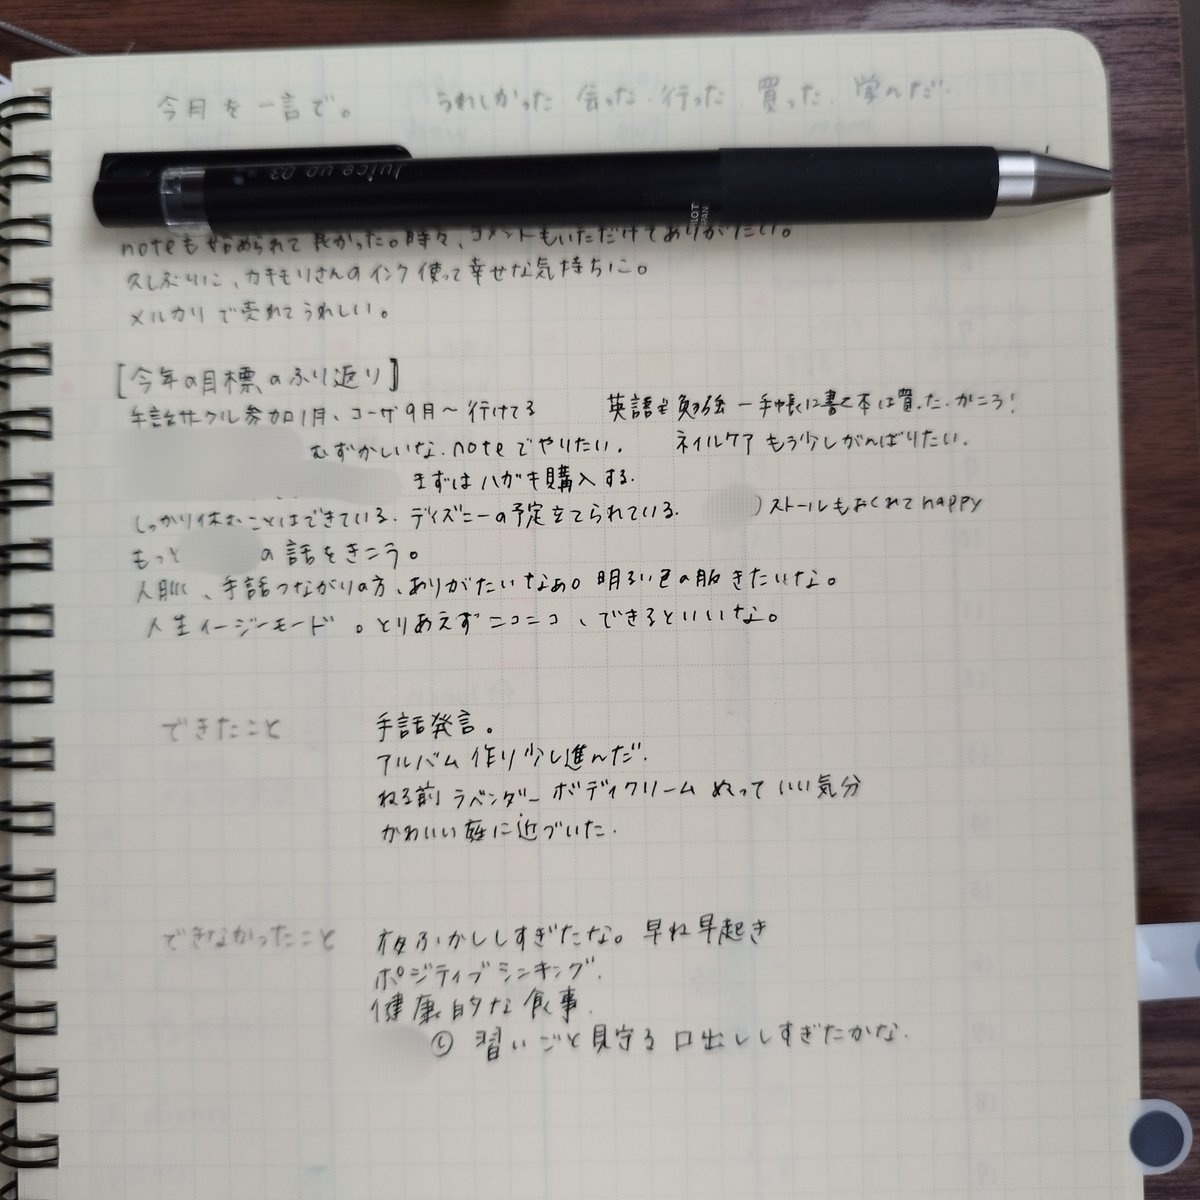 今月を一言で。 うれしかった.会った.行った.買った.学んだ.
Juice up 03
noteも始められて良かった。時々、コメントもいただけてありがたい。
久しぶりに、カキモリさんのインク使って幸せな気持ちに。
メルカリで売れてうれしい。
[今年の目標のふり返り]
手話サークル参加1月、コーザ9月〜行けてる 英語も勉強 ー手帳に書く本は買った.かこう!
むずかしいな.noteでやりたい. ネイルケアもう少しがんばりたい.
まずはハガキ購入する.
しっかり休むことはできている.ディズニーの予定立てられている. )ストールもおくれてhappy
もっと の話をきこう。
、手話つながりの方、ありがたいなぁ。明るい色の服きたいな。
人生イージーモード。とりあえずニコニコ、できるといいな。
できたこと 手話発言。
アルバム作り少し進んだ.
ねる前ラベンダーボディクリームぬっていい気分
かわいい庭に近づいた.
できなかったこと 夜ふかししすぎたな。早ね早起き
ポジティブシンキング.
健康的な食事.
の 習いごと見守る口出ししすぎたかな.